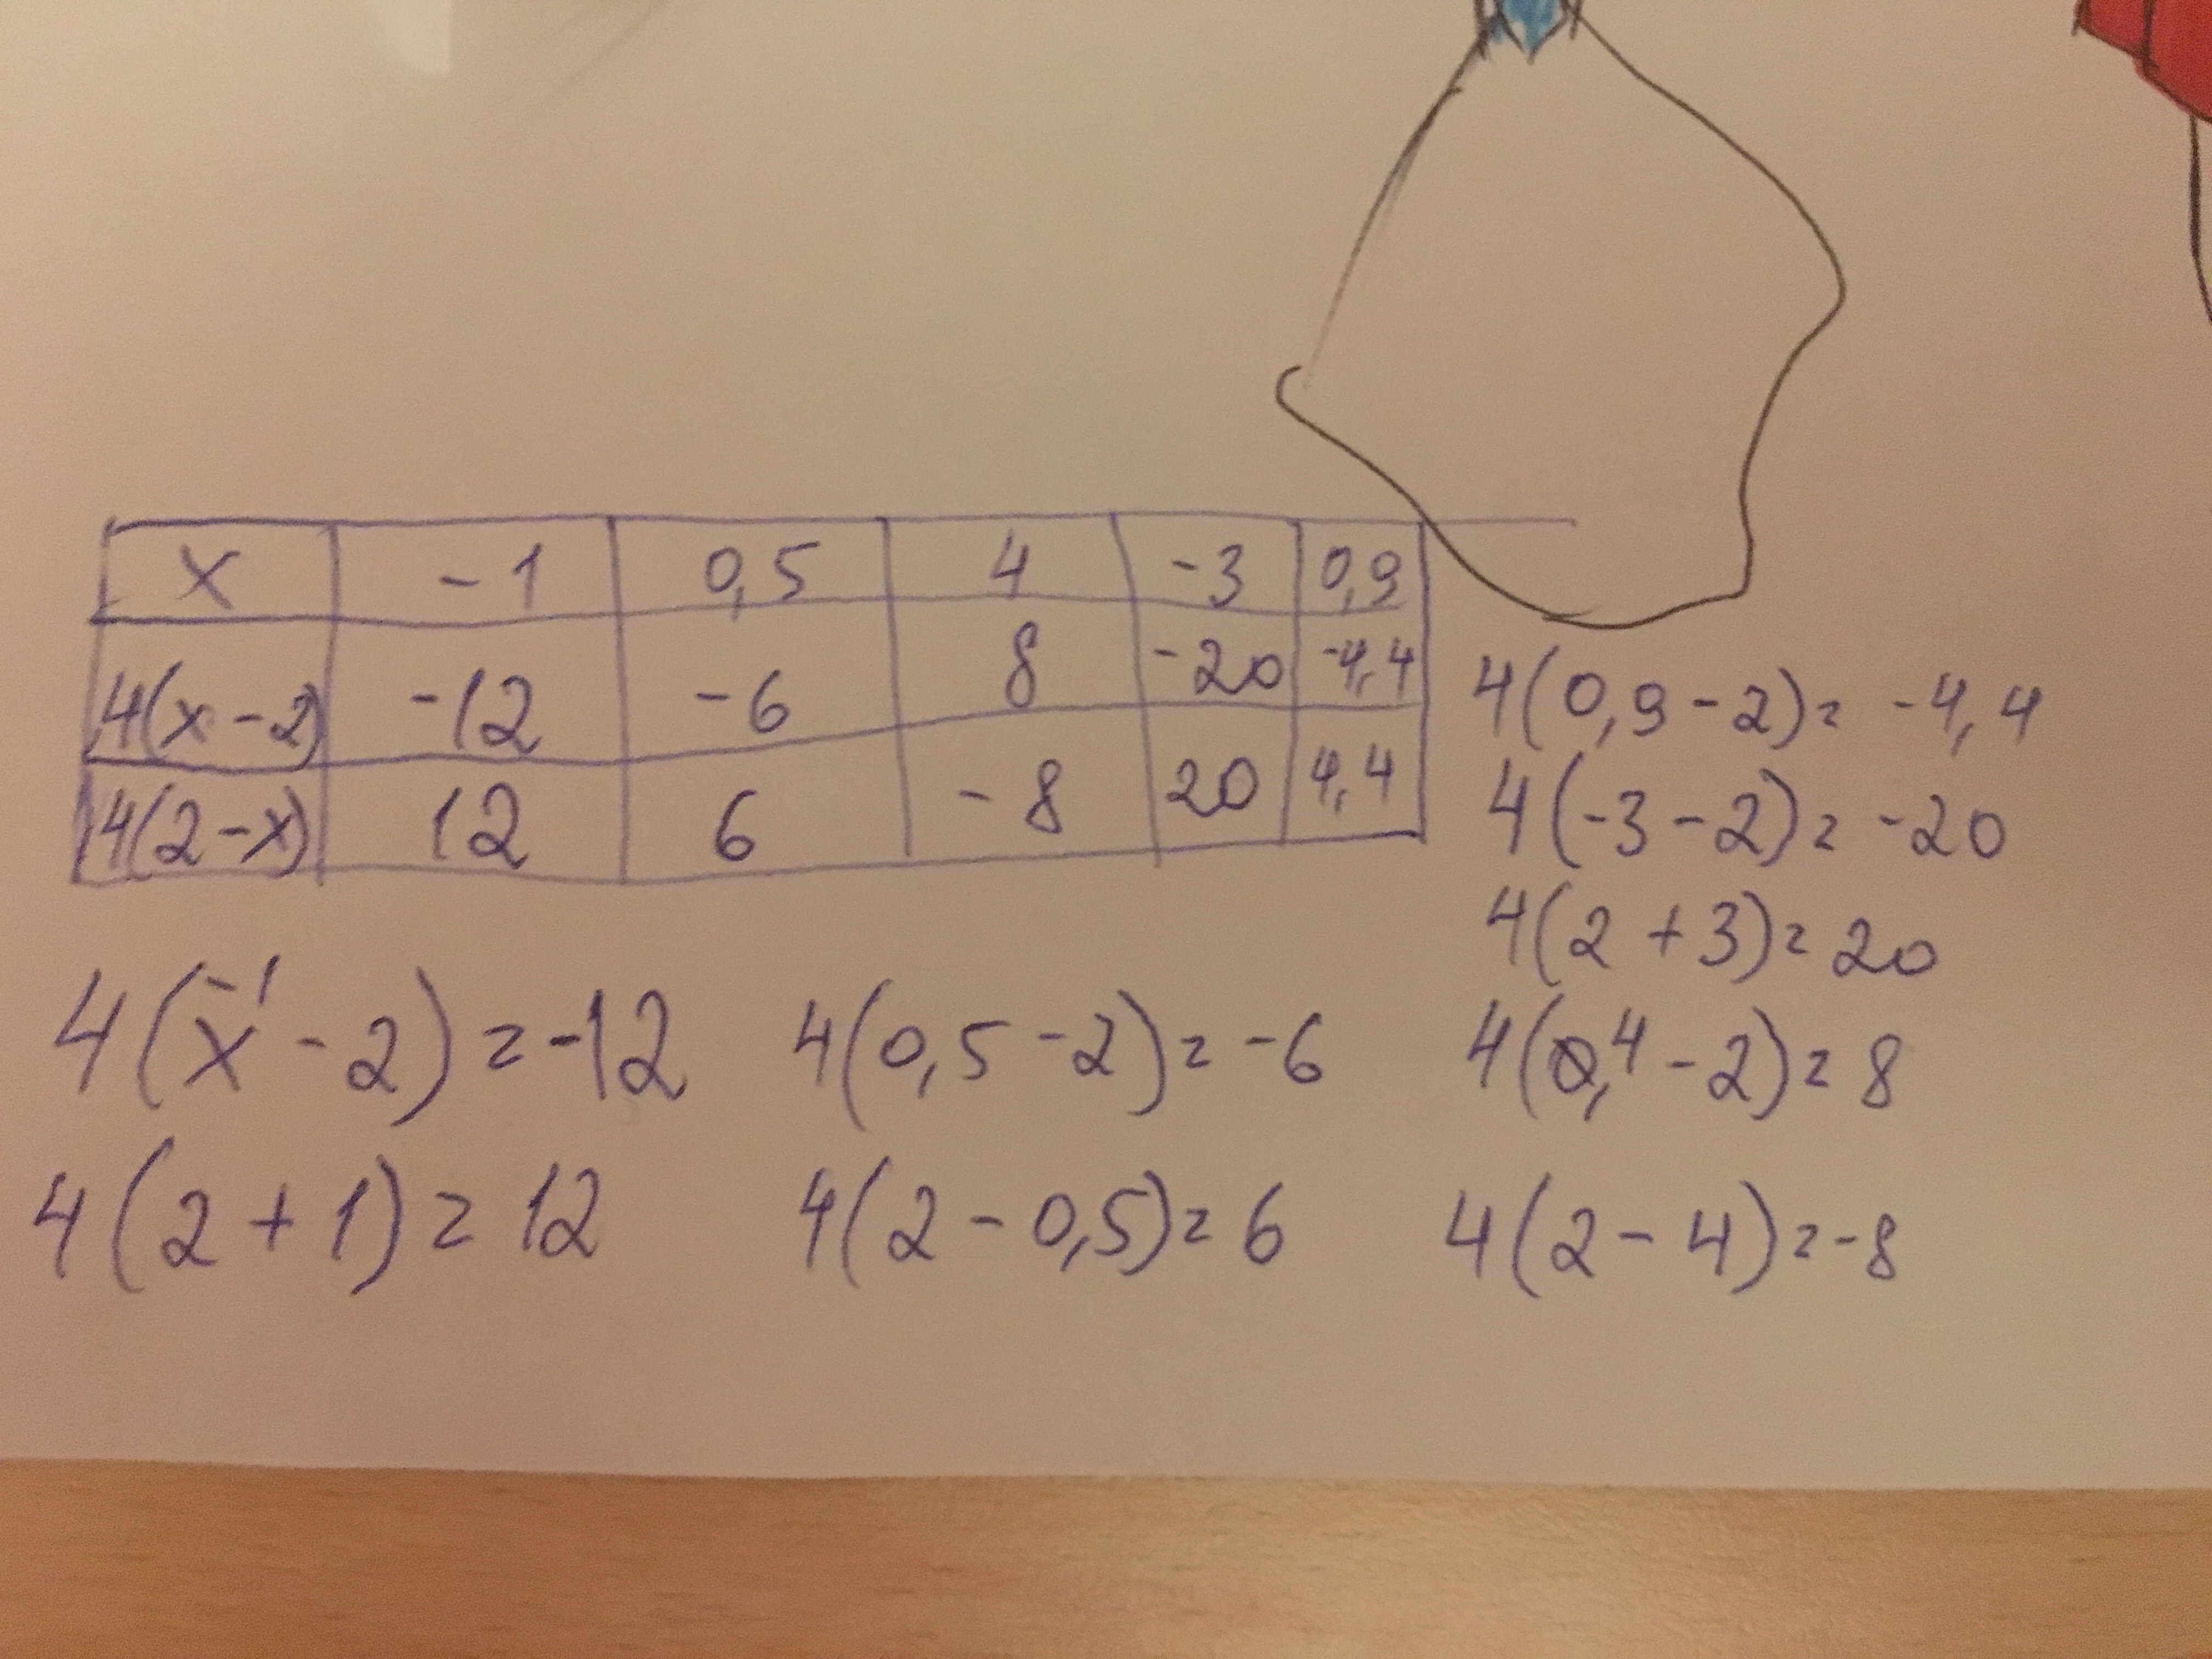 x -1 0,5 4 -3 0,9
4(x-2) -12 -6 8 -20 -4,4
4(2-x) 12 6 -8 20 4,4
4(0,9-2)= -4,4
4(-3-2)= -20
4(2+3)= 20
4(x-2)=-12 4(0,5-2)= -6 4(4-2)= 8
-1
4(2+1)= 12 4(2-0,5)= 6 4(2-4)=-8